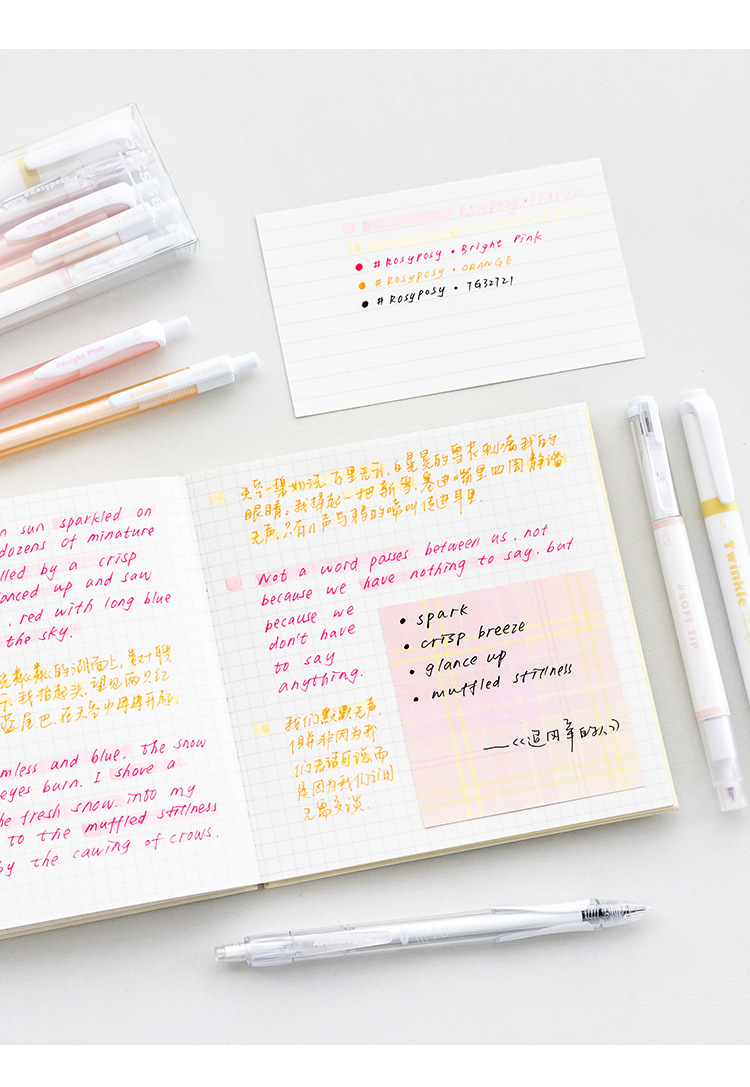 #Rosyposy
#Bright Pink
#ORANGE
#Bright Pink
#ORANGE
#Rosyposy • Bright Pink
#Rosyposy • ORANGE
#Rosyposy • TG32721
sun sparkled on
dozens of minature
by a crisp
glanced up and saw
. red with long blue
the sky.
的湖面上,
我抬起头, 望见两只红
蓝尾巴, 在天空中
and blue, the snow
eyes burn. I shove a
fresh snow. into my
to the muffled stillness
by the cawing of crows.
天空一碧如洗, 万里无云, 白晃晃的雪花刺痛我的
眼睛。我捧起一把新雪, 塞进嘴里. 四周静谧
无声, 只有几声乌鸦的啼叫传进耳里.
Not a word passes between us. not
because we have nothing to say. but
because we
don't have
to say
anything.
我们默默无声,
但并非因为我
们无话可说而
是因为我们之间
无需交谈.
• spark
• crisp breeze
• glance up
• muffled stillness
——《追风筝的人》
#SOFT TIP
Twinkle